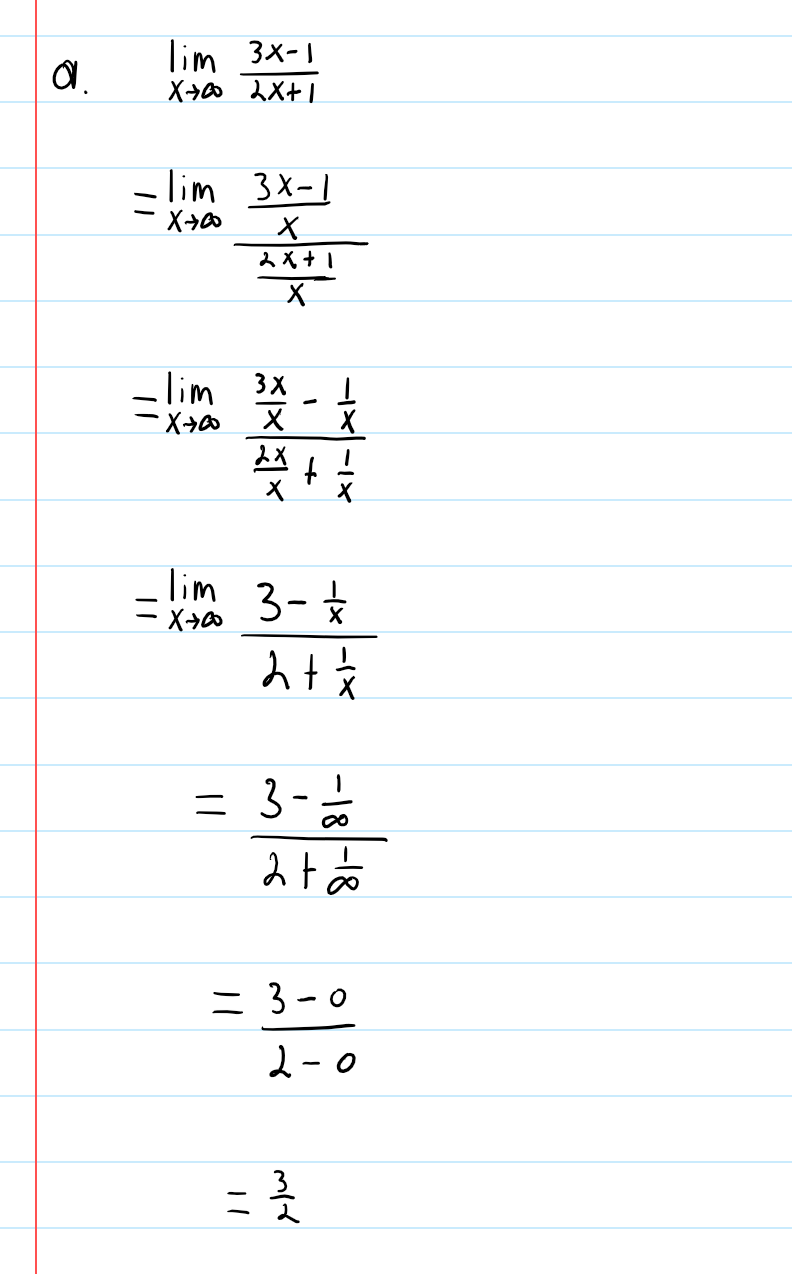 a. lim x→∞ (3x-1)/(2x+1)
= lim x→∞ ((3x-1)/x)/((2x+1)/x)
= lim x→∞ (3x/x - 1/x)/(2x/x + 1/x)
= lim x→∞ (3 - 1/x)/(2 + 1/x)
= (3 - 1/∞)/(2 + 1/∞)
= (3 - 0)/(2 - 0)
= 3/2